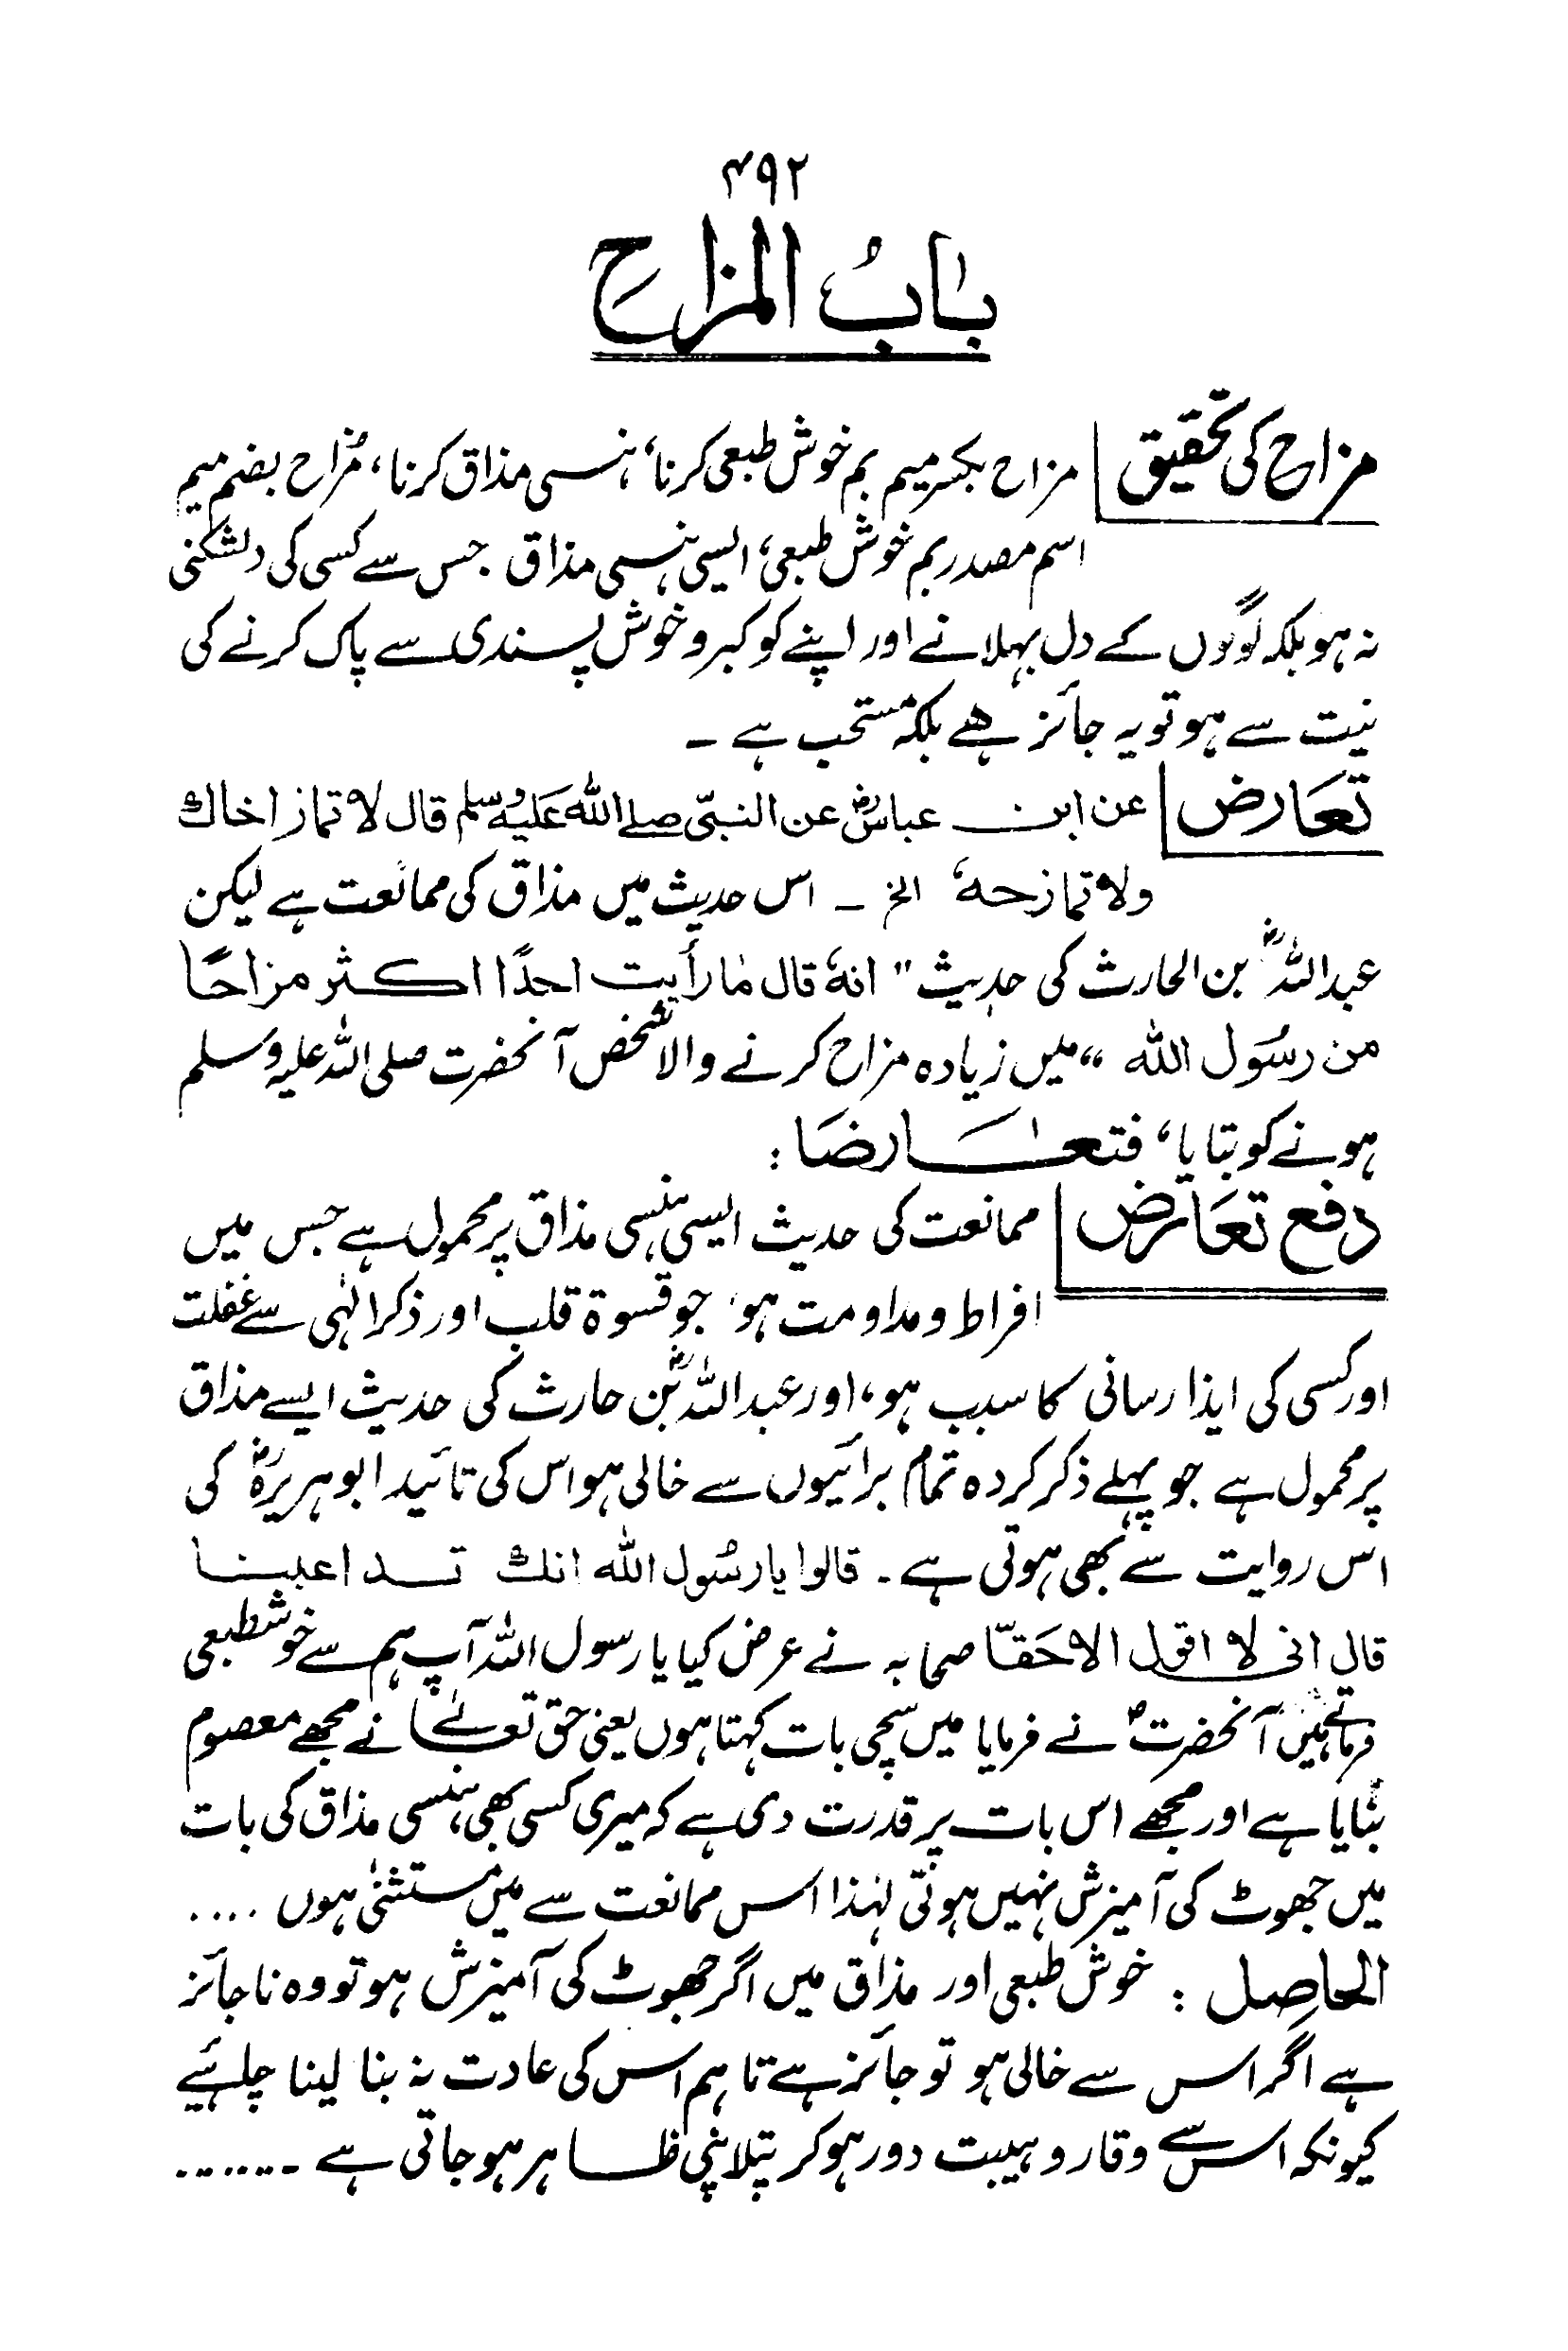 ۴۹۲
بَابُ المزاحِ
مزاح کی تحقیق مزاح بکسر میم بم خوش طبعی کرنا، ہنسی مذاق کرنا، مُزاح بضم میم
اسم مصدر بم خوش طبعی، ایسی ہنسی مذاق جس سے کسی کی دلشکنی
نہ ہو بلکہ لوگوں کے دل بہلانے اور اپنے کو کبر و خوش پسندی سے پاک کرنے کی
نیت سے ہو تو یہ جائز ہے بلکہ مستحب ہے ۔
تعَارض عن ابن عباسؓ عن النبیّ صلے اللہ علیہ وسلم قال لا تماز اخاك
ولا تمازحہٗ الخ ۔ اس حدیث میں مذاق کی ممانعت ہے لیکن
عبداللہؓ بن الحارث کی حدیث " انہٗ قال مٰا رأیت احدًا اکثر مزاحًا
من رسُول اللہ " میں زیادہ مزاح کرنے والا شخص آنحضرت صلی اللہ علیہ وسلم
ہونے کو بتایا، فتعَارضَا :
دفع تعَارض ممانعت کی حدیث ایسی ہنسی مذاق پر محمول ہے جس میں
افراط و مداومت ہو، جو قسوۃ قلب اور ذکر الٰہی سے غفلت
اور کسی کی ایذا رسانی کا سبب ہو، اور عبداللہؓ بن حارث کی حدیث ایسے مذاق
پر محمول ہے جو پہلے ذکر کردہ تمام برائیوں سے خالی ہو اس کی تائید ابوہریرہؓ کی
اس روایت سے بھی ہوتی ہے ۔ قالوا یا رسُول اللہ انك تداعبنا
قال انی لا اقول الا حَقّا صحابہ نے عرض کیا یا رسول اللہ آپ ہم سے خوشطبعی
فرماتے ہیں آنحضرتؐ نے فرمایا میں سچی بات کہتا ہوں یعنی حق تعالےٰ نے مجھے معصوم
بنایا ہے اور مجھے اس بات پر قدرت دی ہے کہ میری کسی بھی ہنسی مذاق کی بات
میں جھوٹ کی آمیزش نہیں ہوتی لہٰذا اس ممانعت سے میں مستثنیٰ ہوں ....
الحاصِل : خوش طبعی اور مذاق میں اگر جھوٹ کی آمیزش ہو تو وہ ناجائز
ہے اگر اس سے خالی ہو تو جائز ہے تاہم اس کی عادت نہ بنا لینا چاہئیے
کیونکہ اس سے وقار و ہیبت دور ہوکر پتلاپنی ظاہر ہو جاتی ہے ۔.......